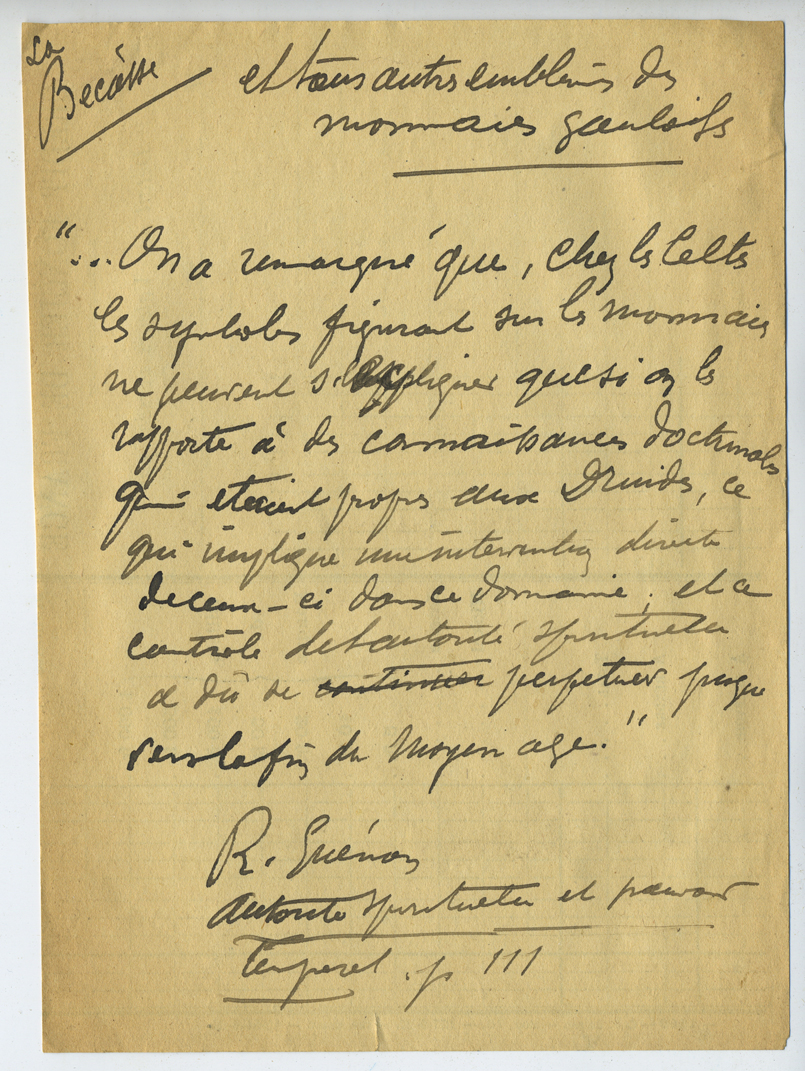 La
Becâsse
et tous autres emblèmes des
monnaies gauloises
"... On a remarqué que, chez les Celtes
les symboles figurant sur les monnaies
ne peuvent s'expliquer que si on les
rapporte à des connaissances doctrinales
qui étaient propres aux Druides, ce
qui implique une intervention directe
de ceux-ci dans ce domaine; et ce
contrôle de l'autorité spirituelle
a dû se continuer perpetuer jusque
vers la fin du Moyen age."
R. Guénon
Autorité spirituelle et pouvoir
temporel . p 111